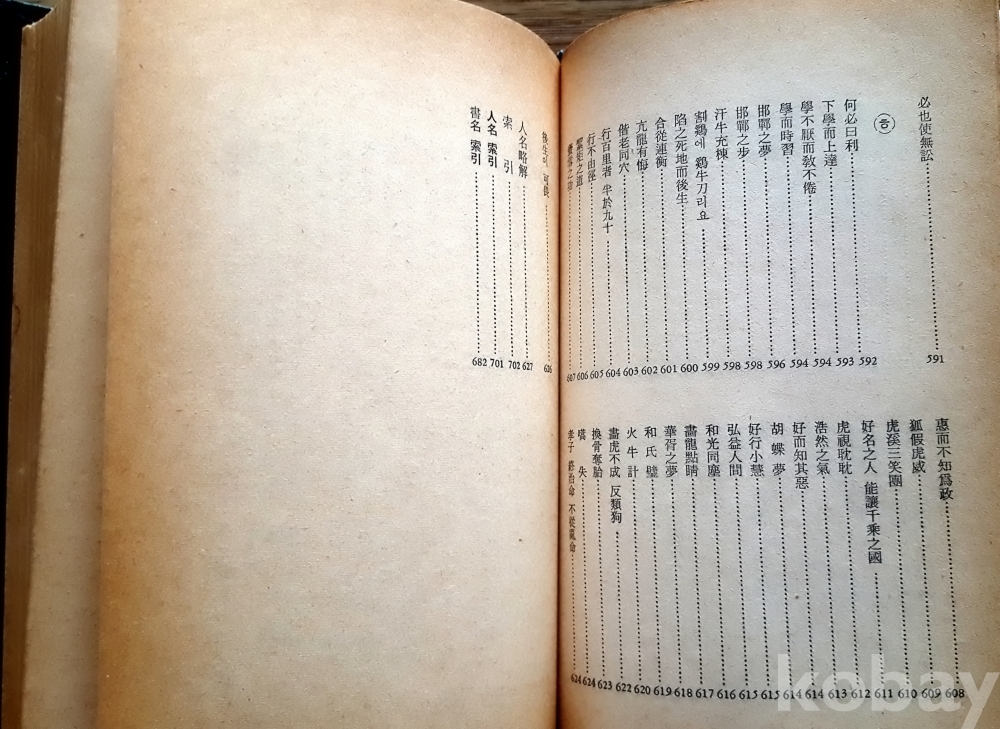 必也使無訟 591
㉻
何必曰利 592
下學而上達 593
學不厭而敎不倦 594
學而時習 594
邯鄲之夢 596
邯鄲之步 598
汗牛充棟 598
割鷄에 鷄牛刀리요 599
陷之死地而後生 600
合從連衡 601
亢龍有悔 602
偕老同穴 603
行百里者 半於九十 604
行不由徑 605
之道 606
607
惠而不知爲政 608
狐假虎威 609
虎溪三笑圖 610
好名之人 能讓千乘之國 611
虎視眈眈 612
浩然之氣 613
好而知其惡 614
胡蝶夢 614
好行小慧 615
弘益人間 615
和光同塵 616
畵龍點睛 617
華胥之夢 618
和氏璧 619
火牛計 620
畵虎不成 反類狗 622
換骨奪胎 623
嚆失 624
孝子 命 不從亂命 624
後生이 可畏 626
人名略解 627
索引 702
人名 索引 701
書名 索引 682
kobay